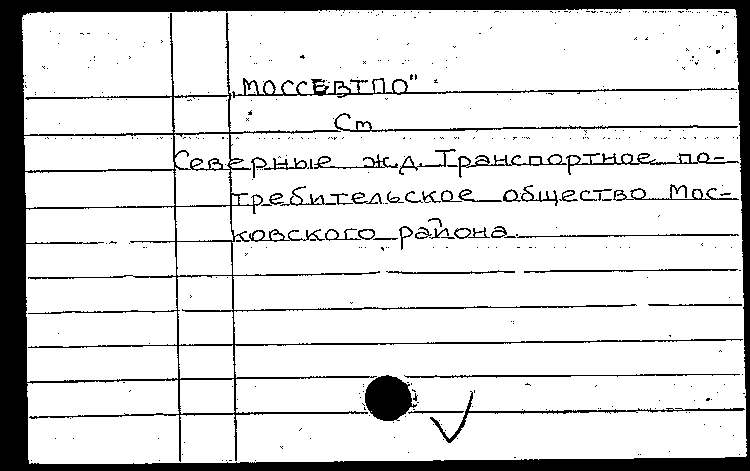 „МОССЕВТПО"
Cm
Северные ж.д. Транспортное по-
требительское общество Мос-
ковского района.